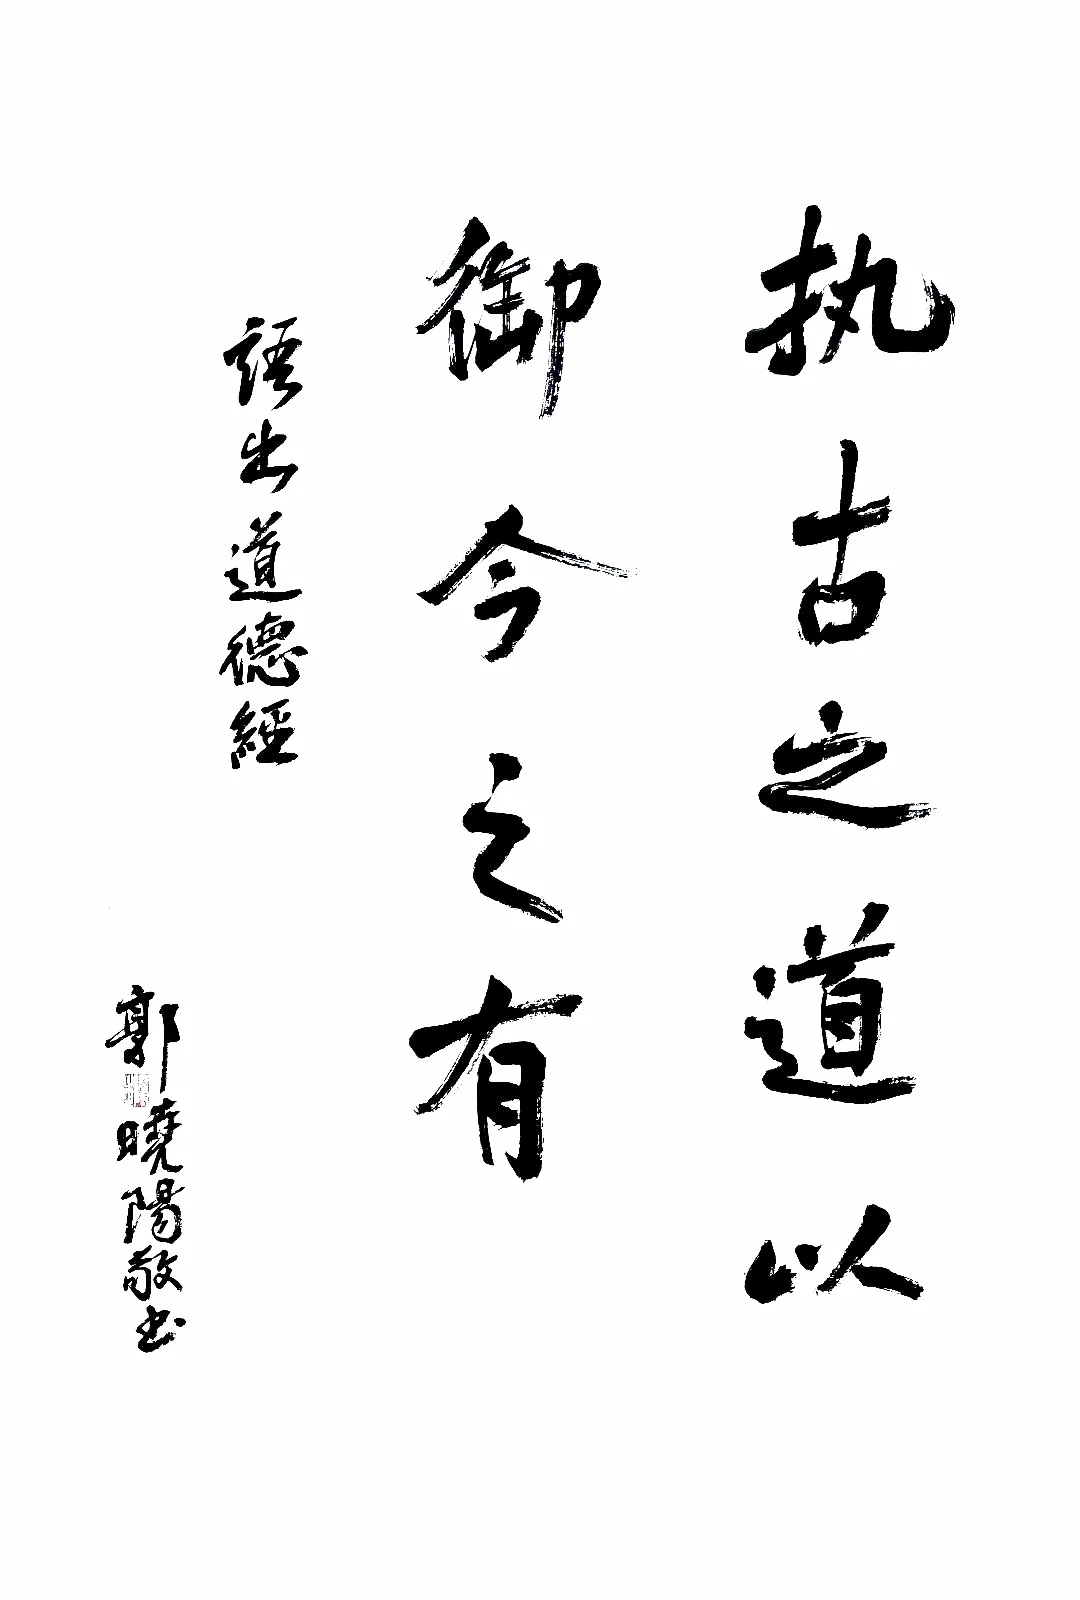 执古之道以
御今之有
語出道德經
郭曉陽敬书